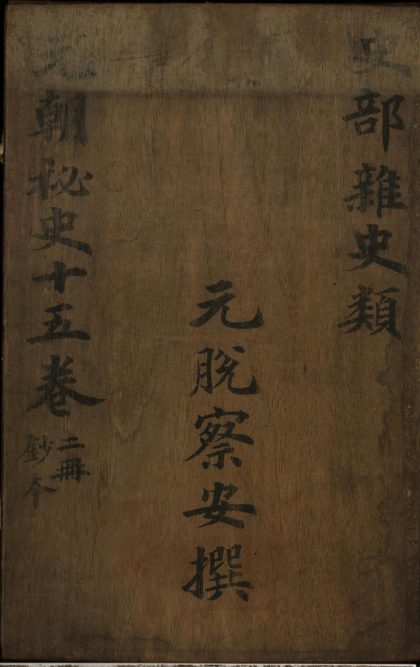 史部雜史類
元脫察安撰
元朝祕史十五卷
二冊
鈔本